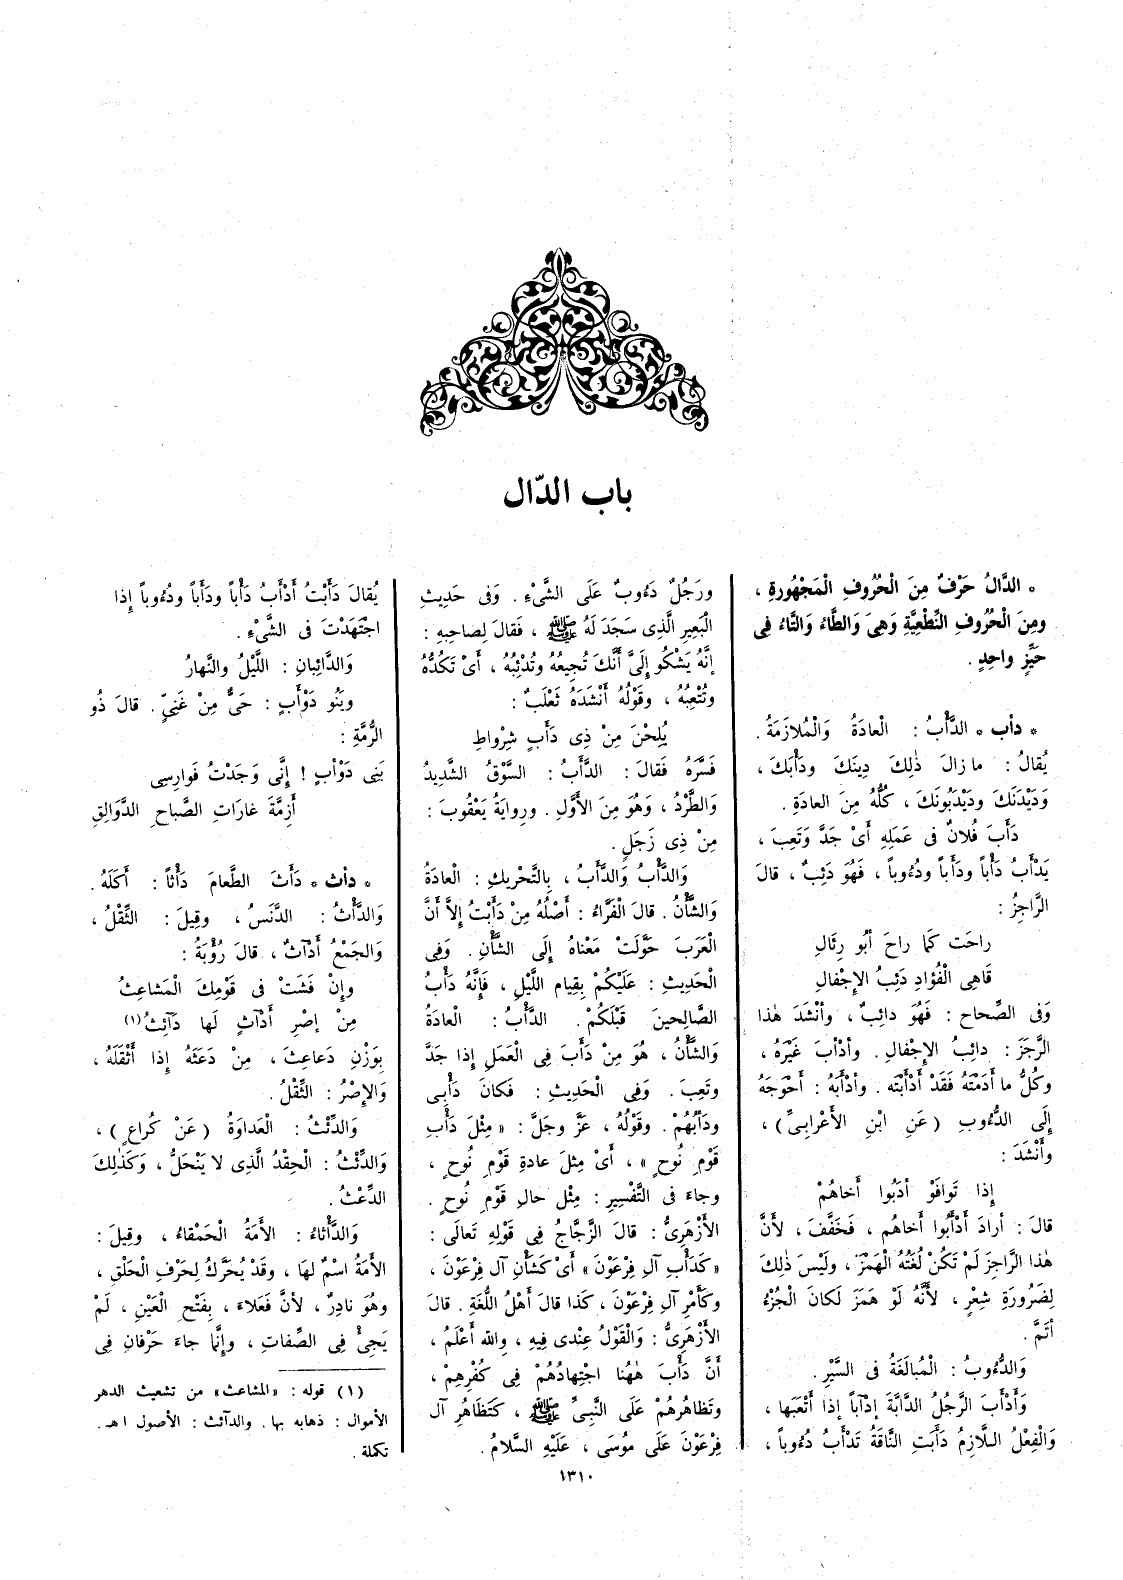 باب الدّال
* الدَّالُ حَرْفٌ مِنَ الْحُرُوفِ الْمَجْهُورَةِ ،
ومِنَ الْحُرُوفِ النِّطْعِيَّةِ وَهِىَ وَالطَّاءُ وَالتَّاءُ فِى
حَيِّزٍ واحِدٍ .
* دأب * الدَّأْبُ : الْعادَةُ وَالْمُلازَمَةُ .
يُقالُ : ما زالَ ذٰلِكَ دِينَكَ ودَأْبَكَ ،
وَدَيْدَنَكَ ودَيْدَبُونَكَ ، كُلُّهُ مِنَ العادَةِ .
دَأَبَ فُلانٌ فى عَمَلِهِ أَىْ جَدَّ وَتَعِبَ ،
يَدْأَبُ دَأْباً ودَأَباً ودُءُوباً ، فَهُوَ دَئِبٌ ، قالَ
الرَّاجِزُ :
راحَت كَما راحَ أَبُو رِئَالِ
قاهِى الْفُؤَادِ دَئِبُ الإِجْفالِ
وَفى الصِّحاحِ : فَهُوَ دائِبٌ ، وأَنْشَدَ هٰذا
الرَّجَزَ : دائِبُ الإِجْفالِ . وأَدْأَبَ غَيْرَهُ ،
وكُلُّ ما أَدَمْتَهُ فَقَدْ أَدْأَبْتَه . وأَدْأَبَهُ : أَحْوَجَهُ
إِلَى الدُّءُوبِ (عَنِ ابْنِ الأَعْرابِىِّ) ،
وأَنْشَدَ :
إِذا تَوافَوْ أدَبُوا أَخاهُمْ
قالَ : أرادَ أَدْأَبُوا أَخاهُم ، فَخَفَّفَ ، لأَنَّ
هٰذا الرَّاجِزَ لَمْ تَكُنْ لُغَتُهُ الْهَمْزَ ، ولَيْسَ ذٰلِكَ
لِضَرُورَةِ شِعْرٍ ، لأَنَّهُ لَوْ هَمَزَ لَكانَ الْجُزْءُ
أَتَمَّ .
وَالدُّءُوبُ : الْمُبالَغَةُ فى السَّيْرِ .
وَأَدْأَبَ الرَّجُلُ الدَّابَّةَ إدْآباً إذا أَتْعَبَها ،
وَالْفِعْلُ اللازِمُ دَأَبَتِ النَّاقَةُ تَدْأَبُ دُءُوباً ،
ورَجُلٌ دَءُوبٌ عَلَى الشَّىْءِ . وَفى حَدِيثِ
الْبَعِيرِ الَّذِى سَجَدَ لَهُ ﷺ ، فَقالَ لِصاحِبِهِ :
إنَّهُ يَشْكُو إِلَىَّ أَنَّكَ تُجِيعُهُ وتُدْئِبُهُ ، أَىْ تَكُدُّهُ
وتُتْعِبُهُ ، وقَوْلُهُ أَنْشَدَهُ ثَعْلَبٌ :
يُلِحْنَ مِنْ ذِى دَأَبٍ شِرْواطِ
فَسَّرَهُ فَقالَ : الدَّأَبُ : السَّوْقُ الشَّدِيدُ
وَالطَّرْدُ ، وَهُوَ مِنَ الأَوَّلِ . ورِوايَةُ يَعْقُوبَ :
مِنْ ذِى زَجَلٍ .
وَالدَّأْبُ وَالدَّأَبُ ، بِالتَّحْرِيكِ : الْعادَةُ
وَالشَّأْنُ . قالَ الْفَرَّاءُ : أَصْلُهُ مِنْ دَأَبْتُ إلاَّ أَنَّ
الْعَرَبَ حَوَّلَتْ مَعْناهُ إِلَى الشَّأْنِ . وَفِى
الْحَدِيثِ : عَلَيْكُمْ بِقِيامِ اللَّيْلِ ، فَإِنَّهُ دَأْبُ
الصَّالِحِينَ قَبْلَكُمْ . الدَّأْبُ : الْعادَةُ
وَالشَّأْنُ ، هُوَ مِنْ دَأَبَ فِى الْعَمَلِ إذا جَدَّ
وتَعِبَ . وَفِى الْحَدِيثِ : فَكانَ دَأْبِى
ودَأْبُهُمْ . وقَوْلُهُ ، عَزَّ وجَلَّ : « مِثْلَ دَأْبِ
قَوْمِ نُوحٍ » ، أَىْ مِثلَ عادَةِ قَوْمِ نُوحٍ ،
وجاءَ فى التَّفْسِيرِ : مِثْل حالِ قَوْمِ نُوحٍ .
الأَزْهَرِىُّ : قالَ الزَّجَّاجُ فِى قَوْلِهِ تَعالَى :
« كَدَأْبِ آلِ فِرْعَوْنَ » أَىْ كَشَأْنِ آلِ فِرْعَوْنَ ،
وكَأَمْرِ آلِ فِرْعَوْنَ ، كَذا قالَ أَهْلُ اللُّغَةِ . قالَ
الأَزْهَرِىُّ : وَالْقَوْلُ عِنْدِى فِيهِ ، واللّه أَعْلَمُ ،
أَنَّ دَأْبَ هٰهُنا اجْتِهادُهُمْ فِى كُفْرِهِمْ ،
وتَظاهُرُهُمْ عَلَى النَّبِىِّ ﷺ ، كَتَظاهُرِ آلِ
فِرْعَوْنَ عَلَى مُوسَى ، عَلَيْهِ السَّلامُ .
يُقالَ دَأَبْتُ أَدْأَبُ دَأْباً ودَأَباً ودُءُوباً إِذا
اجْتَهَدْتَ فى الشَّىْءِ .
وَالدَّائِبانِ : اللَّيْلُ والنَّهارُ
وبَنُو دَوْأَبٍ : حَىٌّ مِنْ غَنِىٍّ . قالَ ذُو
الرُّمَّةِ :
بَنِى دَوْأَبٍ ! إِنِّى وَجَدْتُ فَوارِسِى
أَزِمَّةَ غاراتِ الصَّباحِ الدَّوالِقِ
* دأث * دَأَثَ الطَّعامَ دَأْثاً : أَكَلَهُ .
وَالدَّأْثُ : الدَّنَسُ ، وقِيلَ : الثِّقْلُ ،
وَالجَمْعُ أَدْآثٌ ، قالَ رُؤْبَةُ :
وإِنْ فَشَتْ فى قَوْمِكَ الْمَشاعِثُ
مِنْ إِصْرِ أَدْآثٍ لَها دَآئِثُ(١)
بِوَزْنِ دَعاعِثَ ، مِنْ دَعَثَهُ إِذا أَثْقَلَهُ ،
وَالإِصْرُ : الثِّقْلُ .
وَالدِّئْثُ : الْعَداوَةُ (عَنْ كُراعٍ) ،
وَالدِّئْثُ : الْحِقْدُ الَّذِى لا يَنْحَلُّ ، وَكَذٰلِكَ
الدِّعْثُ .
وَالدَّأْثاءُ : الأَمَةُ الْحَمْقاءُ ، وقِيلَ :
الأَمَةُ اسْمٌ لَها ، وقَدْ يُحَرَّكُ لِحَرْفِ الْحَلْقِ ،
وهُوَ نادِرٌ ، لأَنَّ فَعَلاءَ ، بِفَتْحِ الْعَيْنِ ، لَمْ
يَجِئْ فِى الصِّفاتِ ، وإِنَّما جاءَ حَرْفانِ فِى
(١) قوله : «المشاعث» من تشعيث الدهر
الأموال : ذهابه بها . والدآئث : الأصول اهـ .
تكملة .
١٣١٠